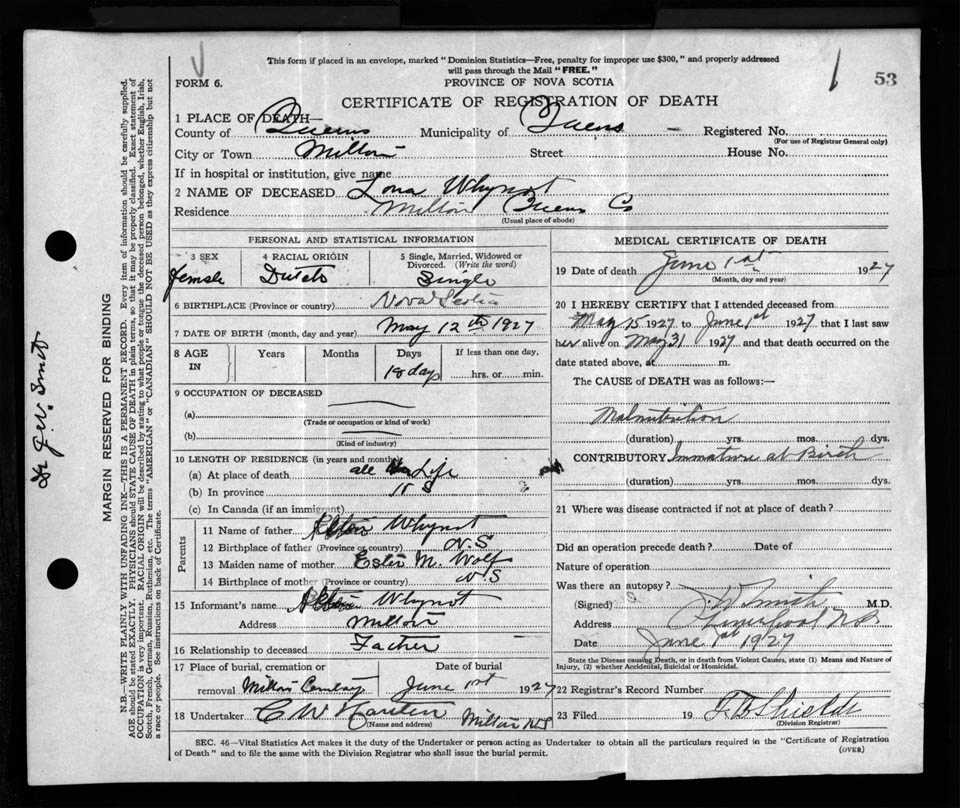 This form if placed in an envelope, marked "Dominion Statistics—Free, penalty for improper use $300," and properly addressed
will pass through the Mail "FREE."
FORM 6.
PROVINCE OF NOVA SCOTIA
53
CERTIFICATE OF REGISTRATION OF DEATH
1 PLACE OF DEATH—
County of Queens Municipality of Queens Registered No.
(For use of Registrar General only)
City or Town Milton Street House No.
If in hospital or institution, give name
2 NAME OF DECEASED Whynot
Residence Milton Queens Co
(Usual place of abode)
PERSONAL AND STATISTICAL INFORMATION
3 SEX 4 RACIAL ORIGIN 5 Single, Married, Widowed or Divorced. (Write the word)
Female Dutch Single
6 BIRTHPLACE (Province or country) Nova Scotia
7 DATE OF BIRTH (month, day and year) May 12th 1927
8 AGE IN Years Months Days If less than one day,
18 days hrs. or min.
9 OCCUPATION OF DECEASED
(a)
(Trade or occupation or kind of work)
(b)
(Kind of industry)
10 LENGTH OF RESIDENCE (in years and months)
(a) At place of death all Life
(b) In province N S
(c) In Canada (if an immigrant)
Parents
11 Name of father Whynot
12 Birthplace of father (Province or country) N.S
13 Maiden name of mother M. Wolf
14 Birthplace of mother (Province or country) N S
15 Informant's name Whynot
Address Milton
16 Relationship to deceased Father
17 Place of burial, cremation or Date of burial
removal Milton June 1st 1927
18 Undertaker C W Milton NS
(Name and address)
MEDICAL CERTIFICATE OF DEATH
19 Date of death June 1st 1927
(Month, day and year)
20 I HEREBY CERTIFY that I attended deceased from
May 15 1927 to June 1st 1927 that I last saw
her alive on May 31 1927 and that death occurred on the
date stated above, at m.
The CAUSE of DEATH was as follows:—
Malnutrition
(duration) yrs. mos. dys.
CONTRIBUTORY Immature at Birth
(duration) yrs. mos. dys.
21 Where was disease contracted if not at place of death?
Did an operation precede death? Date of
Nature of operation
Was there an autopsy?
(Signed) J. W Smith M.D.
Address Liverpool N.S
Date June 1st 1927
State the Disease causing Death, or in death from Violent Causes, state (1) Means and Nature of
Injury, (2) whether Accidental, Suicidal or Homicidal.
22 Registrar's Record Number
23 Filed 19 Shields
(Division Registrar)
SEC. 46—Vital Statistics Act makes it the duty of the Undertaker or person acting as Undertaker to obtain all the particulars required in the "Certificate of Registration
of Death" and to file the same with the Division Registrar who shall issue the burial permit.
(OVER)
MARGIN RESERVED FOR BINDING
N.B.—WRITE PLAINLY WITH UNFADING INK—THIS IS A PERMANENT RECORD. Every item of information should be carefully supplied.
AGE should be stated EXACTLY. PHYSICIANS should STATE CAUSE OF DEATH in plain terms, so that it may be properly classified. Exact statement of
OCCUPATION is very important. RACIAL ORIGIN will be described by stating to what people or tongue the deceased person belonged, whether English, Irish,
Scotch, French, German, Russian, Ruthenian, etc. The terms "AMERICAN" or "CANADIAN" SHOULD NOT BE USED as they express citizenship but not
a race or people. See instructions on back of Certificate.
Dr J. W. Smith